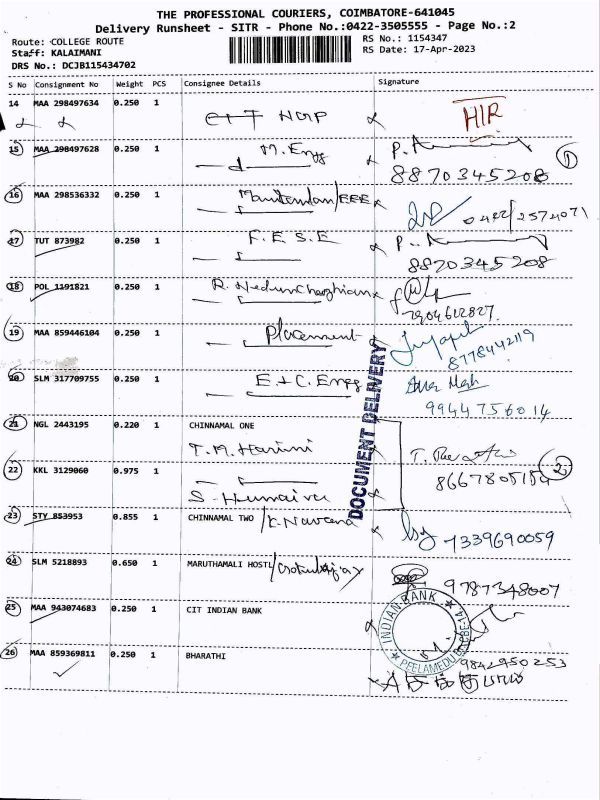 THE PROFESSIONAL COURIERS, COIMBATORE-641045
Delivery Runsheet - SITR - Phone No.:0422-3505555 - Page No.:2
Route: COLLEGE ROUTE
RS No.: 1154347
Staff: KALAIMANI
RS Date: 17-Apr-2023
DRS No.: DCJB115434702
S No Consignment No Weight PCS Consignee Details Signature
14 MAA 298497634 0.250 1 CIT HIR
15 MAA 298497628 0.250 1 M. Engg P. 1
8870345208
16 MAA 298536332 0.250 1 Manikandan/EEE 0422/2574071
17 TUT 873982 0.250 1 F.E.S.E P.
8870345208
18 POL 1191821 0.250 1 R. Nedunchezhian
7904612827
19 MAA 859446104 0.250 1 Placement
8778442119
20 SLM 317709755 0.250 1 E & C. Engg
9944756014
DOCUMENT DELIVERY
21 NGL 2443195 0.220 1 CHINNAMAL ONE
T.M. Harini T.
22 KKL 3129060 0.975 1 2
S. Humaira
23 STY 853953 0.855 1 CHINNAMAL TWO /K. Naveena 7339690059
24 SLM 5218893 0.650 1 MARUTHAMALI HOSTL/
9787348007
25 MAA 943074683 0.250 1 CIT INDIAN BANK
INDIAN BANK
PEELAMEDU CBE-14
26 MAA 859369811 0.250 1 BHARATHI
9842950253